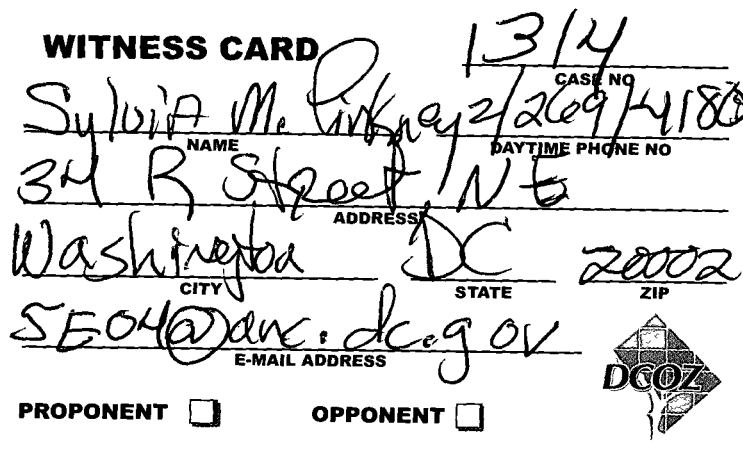 WITNESS CARD 13/4
CASE NO
Sylvia M. Pinkney 2/269/4180
NAME DAYTIME PHONE NO
34 R Street, NE
ADDRESS
Washington DC 20002
CITY STATE ZIP
5E04@anc.dc.gov
E-MAIL ADDRESS
DCOZ
PROPONENT OPPONENT